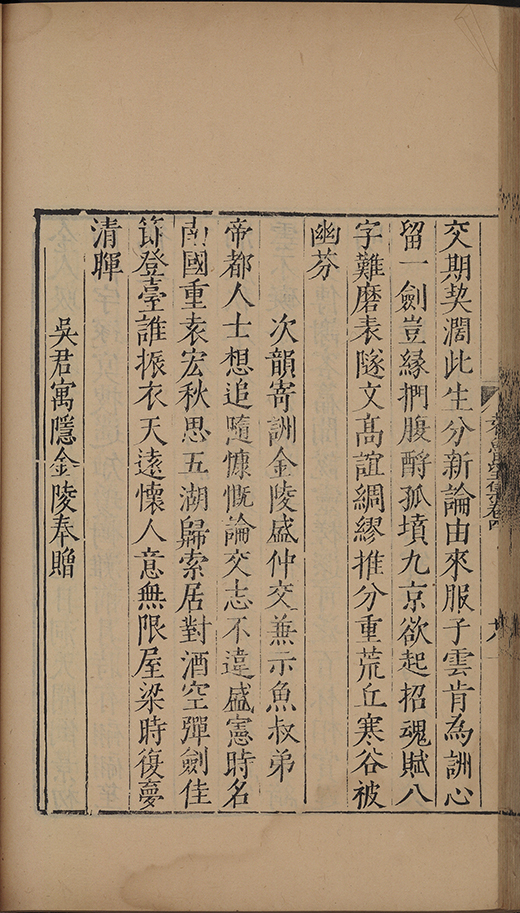 交期契濶此生分新論由來服子雲肯為詶心
留一劍豈緣捫腹酹孤墳九京欲起招魂賦八
字難磨表隧文髙誼綢繆推分重荒丘寒谷被
幽芬
次韻寄詶金陵盛仲交兼示魚叔弟
帝都人士想追隨慷慨論交志不違盛憲時名
南國重袁宏秋思五湖歸索居對酒空彈劍佳
節登臺誰振衣天遠懷人意無限屋梁時復夢
清暉
吳君寓隱金陵奉贈